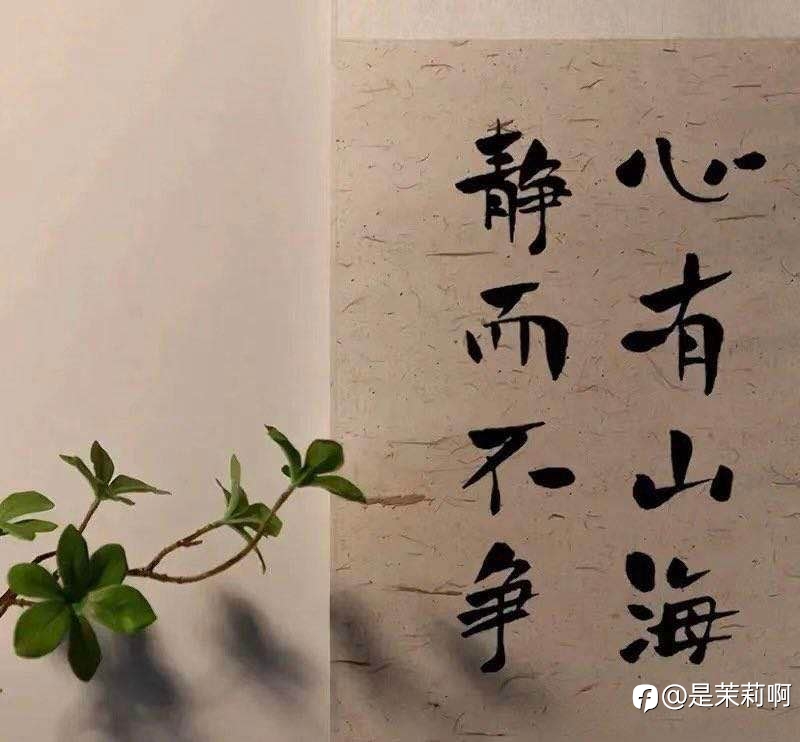 心有山海
静而不争
@是茉莉啊